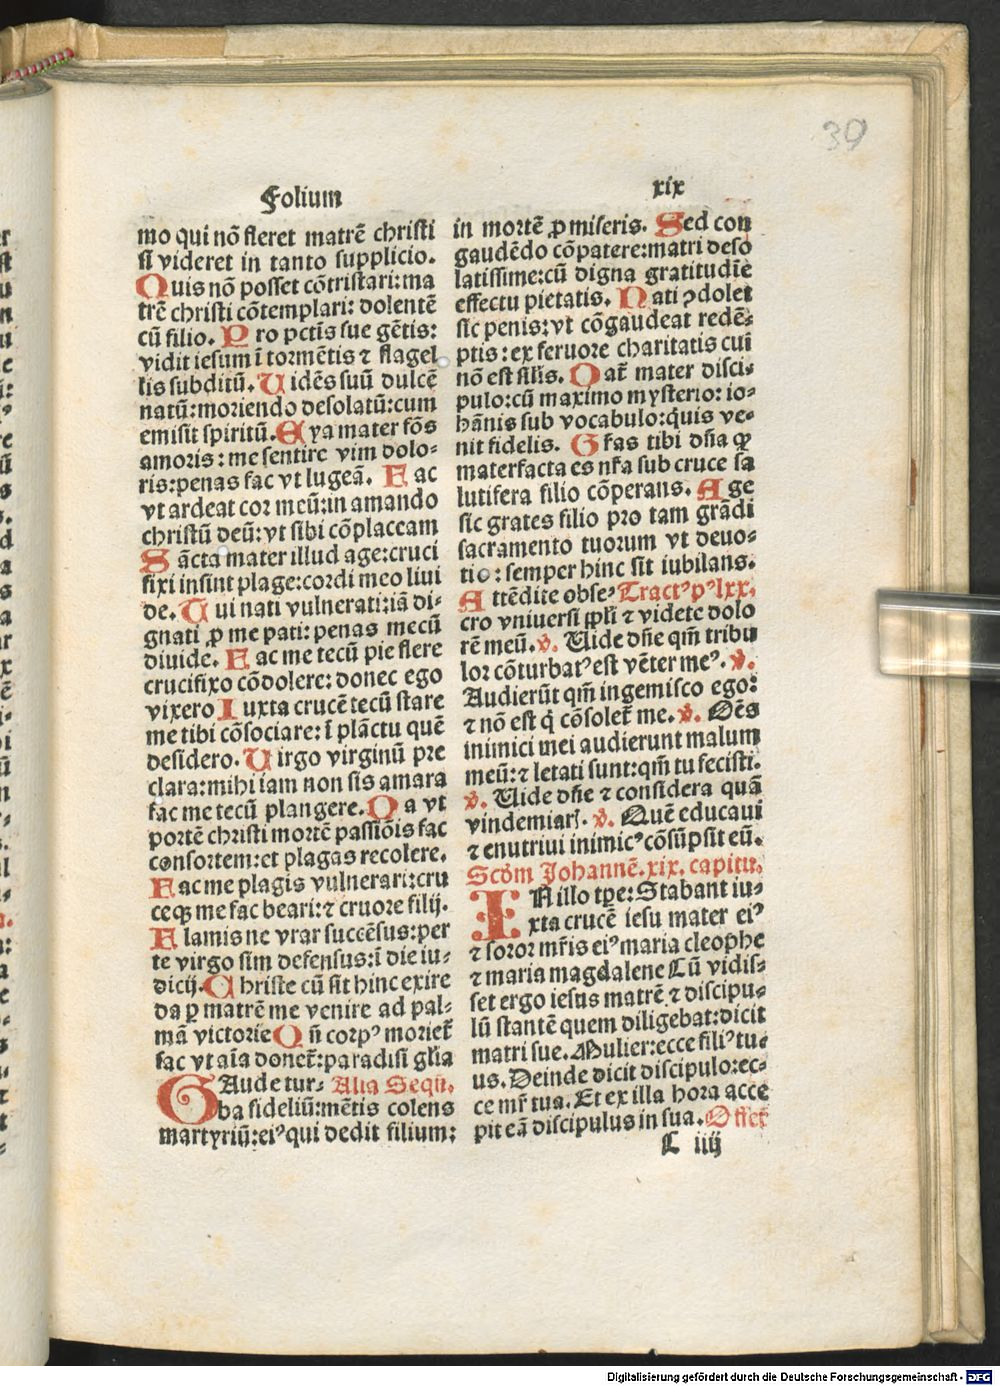 39
Folium xix
mo qui nõ fleret matrẽ christi
si videret in tanto supplicio.
Quis nõ posset cõtristari: ma
trẽ christi cõtemplari: dolentẽ
cũ filio. Pro pctĩs sue gẽtis:
vidit iesum ĩ tormẽtis ⁊ flagel
lis subditũ. Uidẽs suũ dulcẽ
natũ: moriendo desolatũ: cum
emisit spiritũ. Eya mater fõs
amoris: me sentire vim dolo⸗
ris: penas fac vt lugeã. Fac
vt ardeat cor meũ: in amando
christũ deũ: vt sibi cõplaceam
Sãcta mater illud age: cruci
fixi insint plage: cordi meo liui
de. Cui nati vulnerati: iã di⸗
gnati ꝓ me pati: penas mecũ
diuide. Fac me tecũ pie flere
crucifixo cõdolere: donec ego
vixero Iuxta crucẽ tecũ stare
me tibi cõsociare: ĩ plãctu quẽ
desidero. Uirgo virginũ pre
clara: mihi iam non sis amara
fac me tecũ plangere. Da vt
portẽ christi mortẽ passiõis fac
consortem: et plagas recolere.
Fac me plagis vulnerari: cru
ceqꝫ me fac beari: ⁊ cruore filij.
Flamis ne vrar succẽsus: per
te virgo sim defensus: ĩ die iu⸗
dicij. Christe cũ sit hinc exire
da ꝑ matrẽ me venire ad pal⸗
mã victorie Qñ corpꝰ moriet̃
fac vt aĩa donet̃: paradisi glĩa
GAude tur⸗ Alia Sequẽ.
ba fideliũ: mẽtis colens
martyriũ: eiꝰ qui dedit filium:
in mortẽ ꝓ miseris. Sed con
gaudẽdo cõpatere: matri deso
latissime: cũ digna gratitudĩe
effectu pietatis. Nati ꝯdolet
sic penis: vt cõgaudeat redẽ⸗
ptis: ex feruore charitatis cui
nõ est sil̃is. Dat̃ mater disci⸗
pulo: cũ maximo mysterio: io⸗
hãnis sub vocabulo: quis ve⸗
nit fidelis. Gr̃as tibi dña qꝫ
materfacta es nr̃a sub cruce sa
lutifera filio cõperans. Age
sic grates filio pro tam grãdi
sacramento tuorum vt deuo⸗
tio: semper hinc sit iubilans.
Attẽdite obse⸗ Tractꝰ pꝰ lxx.
cro vniuersi ppl̃i ⁊ videte dolo
rẽ meũ. v̾. Uide dñe qm̃ tribu
lor cõturbatꝰ est vẽter meꝰ. v̾.
Audierũt qm̃ ingemisco ego:
⁊ nõ est q̇ cõsolet̃ me. v̾. Oẽs
inimici mei audierunt malum
meũ: ⁊ letati sunt: qm̃ tu fecisti.
v̾. Uide dñe ⁊ considera quã
vindemiar̃. v̾. Quẽ educaui
⁊ enutriui inimicꝰ cõsũpsit eũ.
Scðm Johannẽ. xix. capitu.
IN illo tꝑe: Stabant iu⸗
xta crucẽ iesu mater eiꝰ
⁊ soror mr̃is eiꝰ maria cleophe
⁊ maria magdalene Cũ vidis⸗
set ergo iesus matrẽ ⁊ discipu⸗
lũ stantẽ quem diligebat: dicit
matri sue. Mulier: ecce filiꝰ tu⸗
us. Deinde dicit discipulo: ec⸗
ce mr̃ tua. Et ex illa hora acce
pit eã discipulus in sua. Offet̃
C iiij
Digitalisierung gefördert durch die Deutsche Forschungsgemeinschaft - DFG